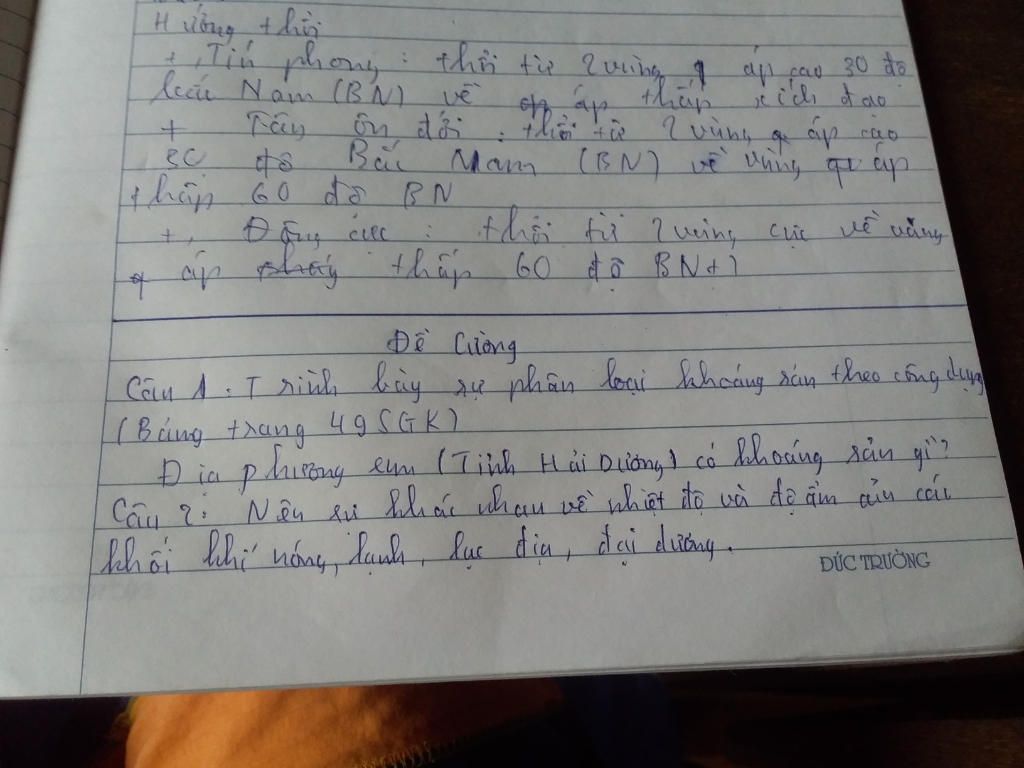 Hướng thổi
+, Tín phong : thổi từ 2 vùng áp cao 30 độ
Bắc Nam (BN) về áp thấp xích đạo
+ Tây ôn đới : thổi từ 2 vùng áp cao
30 độ Bắc Nam (BN) về vùng áp
thấp 60 độ BN
+, Đông cực : thổi từ 2 vùng cực về vùng
áp thấp 60 độ BN
Đề Cương
Câu 1 : Trình bày sự phân loại khoáng sản theo công dụng
(Bảng trang 49 SGK)
Địa phương em (Tỉnh Hải Dương) có khoáng sản gì?
Câu 2 : Nêu sự khác nhau về nhiệt độ và độ ẩm của các
khối khí nóng, lạnh, lục địa, đại dương.
ĐỨC TRƯỜNG